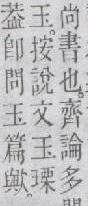 尚書也。齊論多
玉。按說文玉瑮
葢即問玉篇歟。